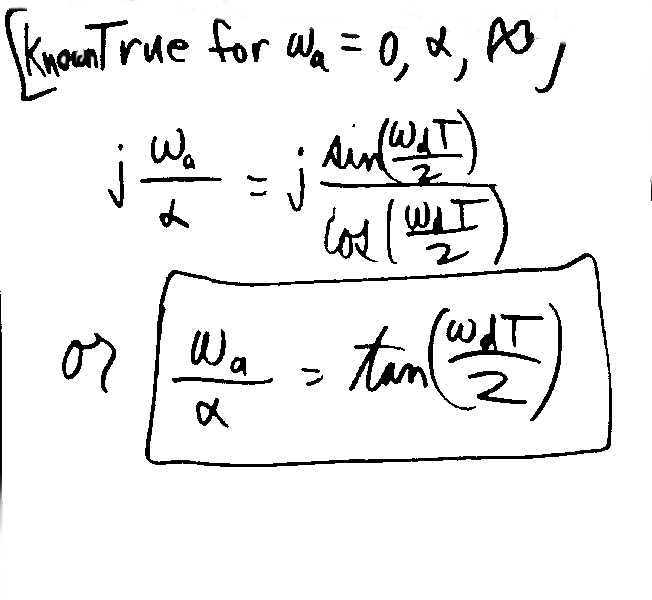 [Known True for ωₐ = 0, α, ∞,
j ωₐ/α = j sin(ω_d T/2)/cos(ω_d T/2)
or ωₐ/α = tan(ω_d T/2)